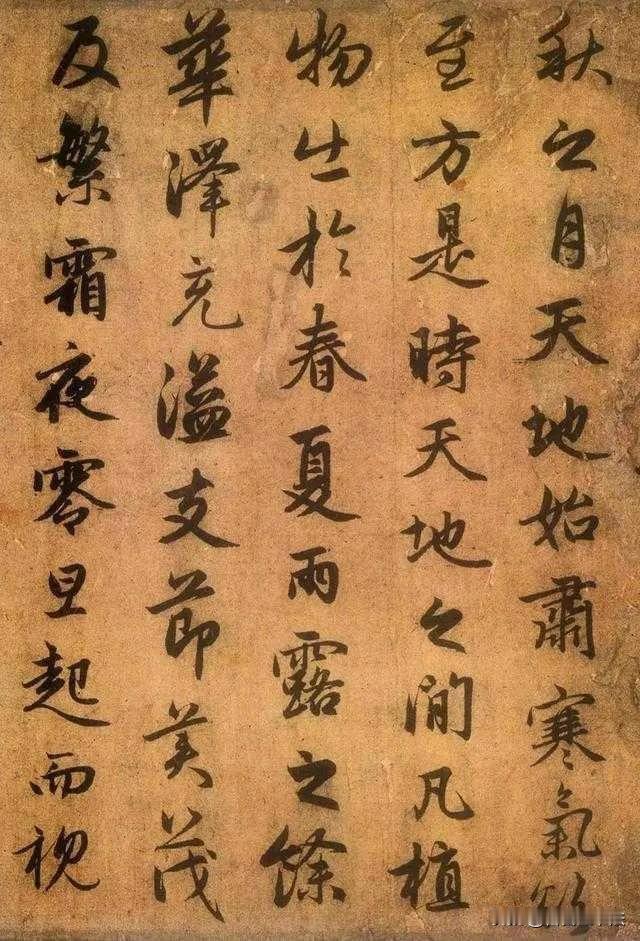 秋之月天地始肅寒氣欲
至方是時天地之間凡植
物出於春夏雨露之餘
華澤充溢支節美茂
及繁霜夜零旦起而視